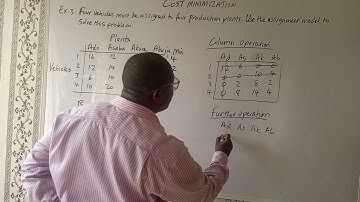 COST MINIMIZATION
Ex. 3: Four vehicles must be assigned to four production plants. Use the assignment model to
Solve this problem.
Plants
Ado Asaba Akwa Abuja min
Vehicles 1 16 12
2 12 14
3 6 10
4 10 20
Column Operation
Ad As Ak Ab
1 12 6 0 0
2 0 0 10 4
3 0 2 8 2
4 0 8 14 4
Further operation
Ad As Ak Ab